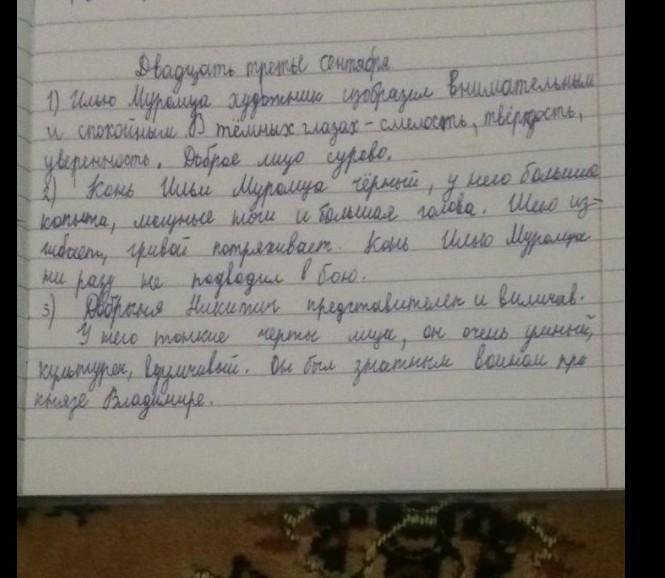 Двадцать третье сентября
1) Илью Муромца художник изобразил внимательным
и спокойным. В тёмных глазах - смелость, твёрдость,
уверенность. Доброе лицо сурово.
2) Конь Ильи Муромца чёрный, у него большие
копыта, мощные ноги и большая голова. Шею из-
гибает, гривой потряхивает. Конь Илью Муромца
ни разу не подводил в бою.
3) Добрыня Никитич представителен и виличав.
У него тонкие черты лица, он очень умный,
культурен, вдумчивый. Он был знатным воином при
князе Владимире.